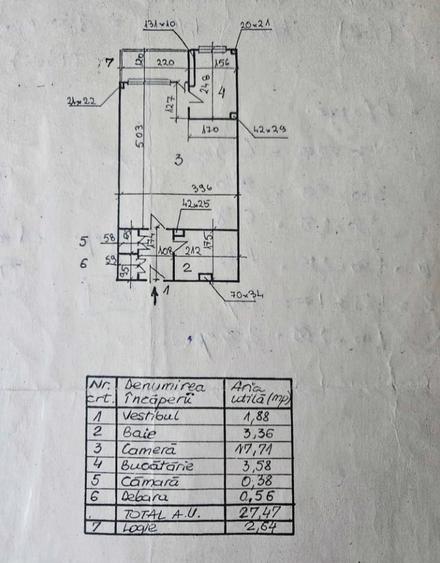 131x10
20x21
7
120
220
156
248
4
21x22
127
503
170
42x29
3
396
42x25
5
58
65
174
175
108
212
6
59
95
2
1
70x34
Nr. crt. Denumirea încăperii Aria utilă (mp)
1 Vestibul 1,88
2 Baie 3,36
3 Cameră 17,71
4 Bucătărie 3,58
5 Cămară 0,38
6 Debara 0,56
. TOTAL A.U. 27,47
7 Logie 2,64